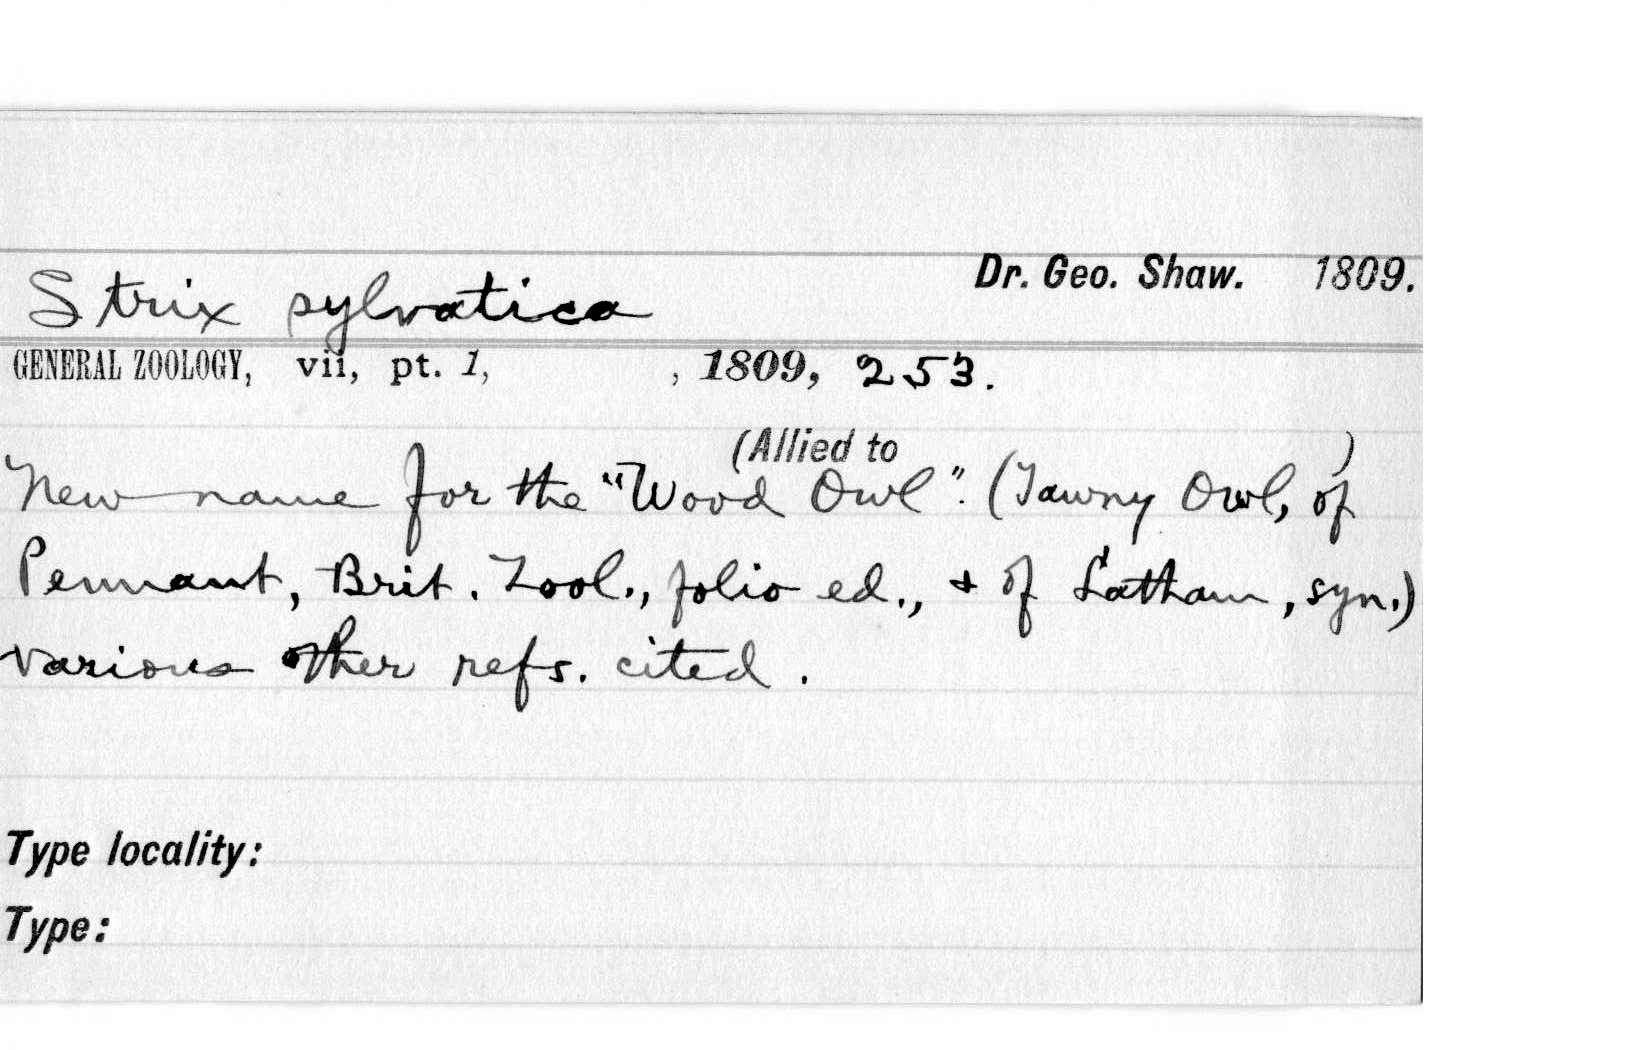 Dr. Geo. Shaw. 1809.
Strix sylvatica
GENERAL ZOOLOGY, vii, pt. 1, , 1809, 253.
(Allied to )
New name for the "Wood Owl". (Tawny Owl, of
Pennant, Brit. Zool., folio ed., + of Latham, syn.)
various other refs. cited.
Type locality:
Type: